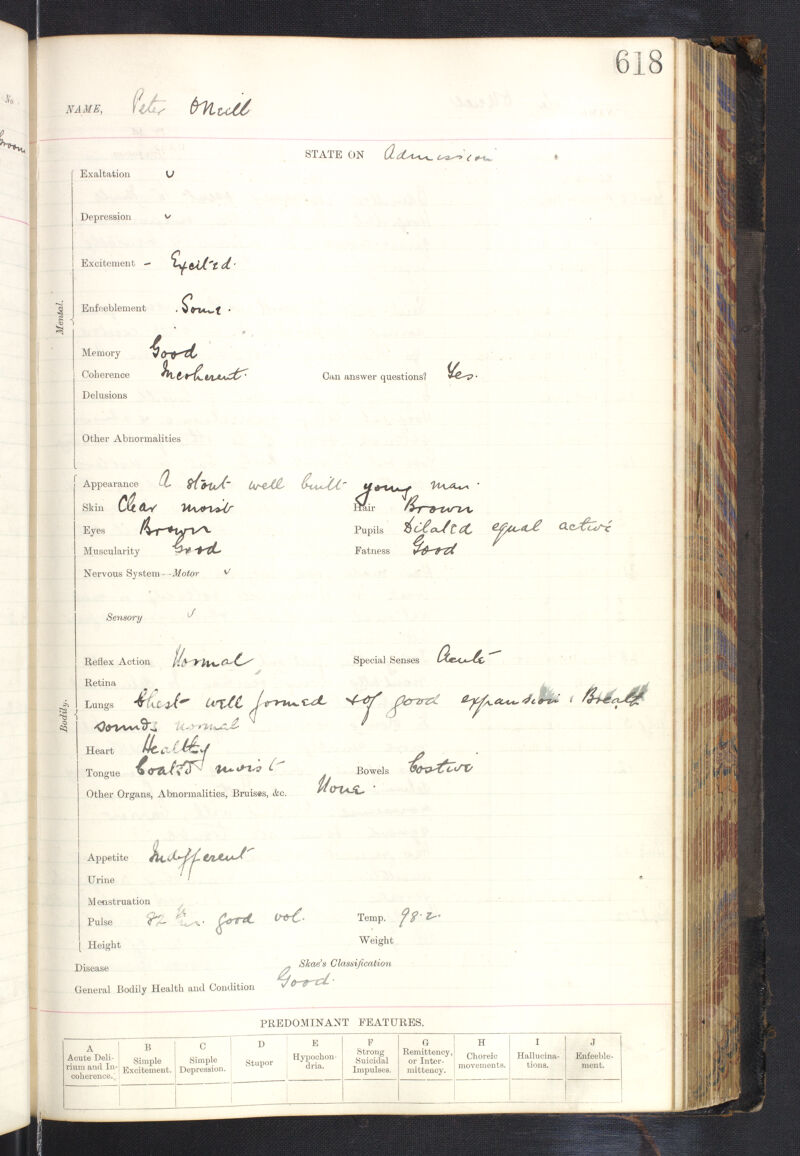 618
No.
NAME, Peter ONeill
STATE ON Admission
Exaltation ᴗ
Depression ᴗ
Excitement - Excited.
Mental.
Enfeeblement . Some .
Memory Good
Coherence Incoherent. Can answer questions? Yes.
Delusions
Other Abnormalities
Appearance A stout well built young man.
Skin Clear moist Hair Brown
Eyes Brown Pupils Dilated equal active
Muscularity Good Fatness Good
Nervous System—Motor ᴗ
Sensory ᴗ
Reflex Action Normal Special Senses Acute
Retina
Bodily.
Lungs Chest well formed & of good expansion. Breath
sounds normal
Heart Healthy
Tongue Coated moist Bowels Costive
Other Organs, Abnormalities, Bruises, &c. None.
Appetite Indifferent
Urine
Menstruation
Pulse 82 good vol. Temp. 98.2.
Height Weight
Disease Skae's Classification
General Bodily Health and Condition Good.
PREDOMINANT FEATURES.
A B C D E F G H I J
Acute Deli-rium and In-coherence. Simple Excitement. Simple Depression. Stupor Hypochon-dria. Strong Suicidal Impulses. Remittency, or Inter-mittency. Choreic movements. Hallucina-tions. Enfeeble-ment.